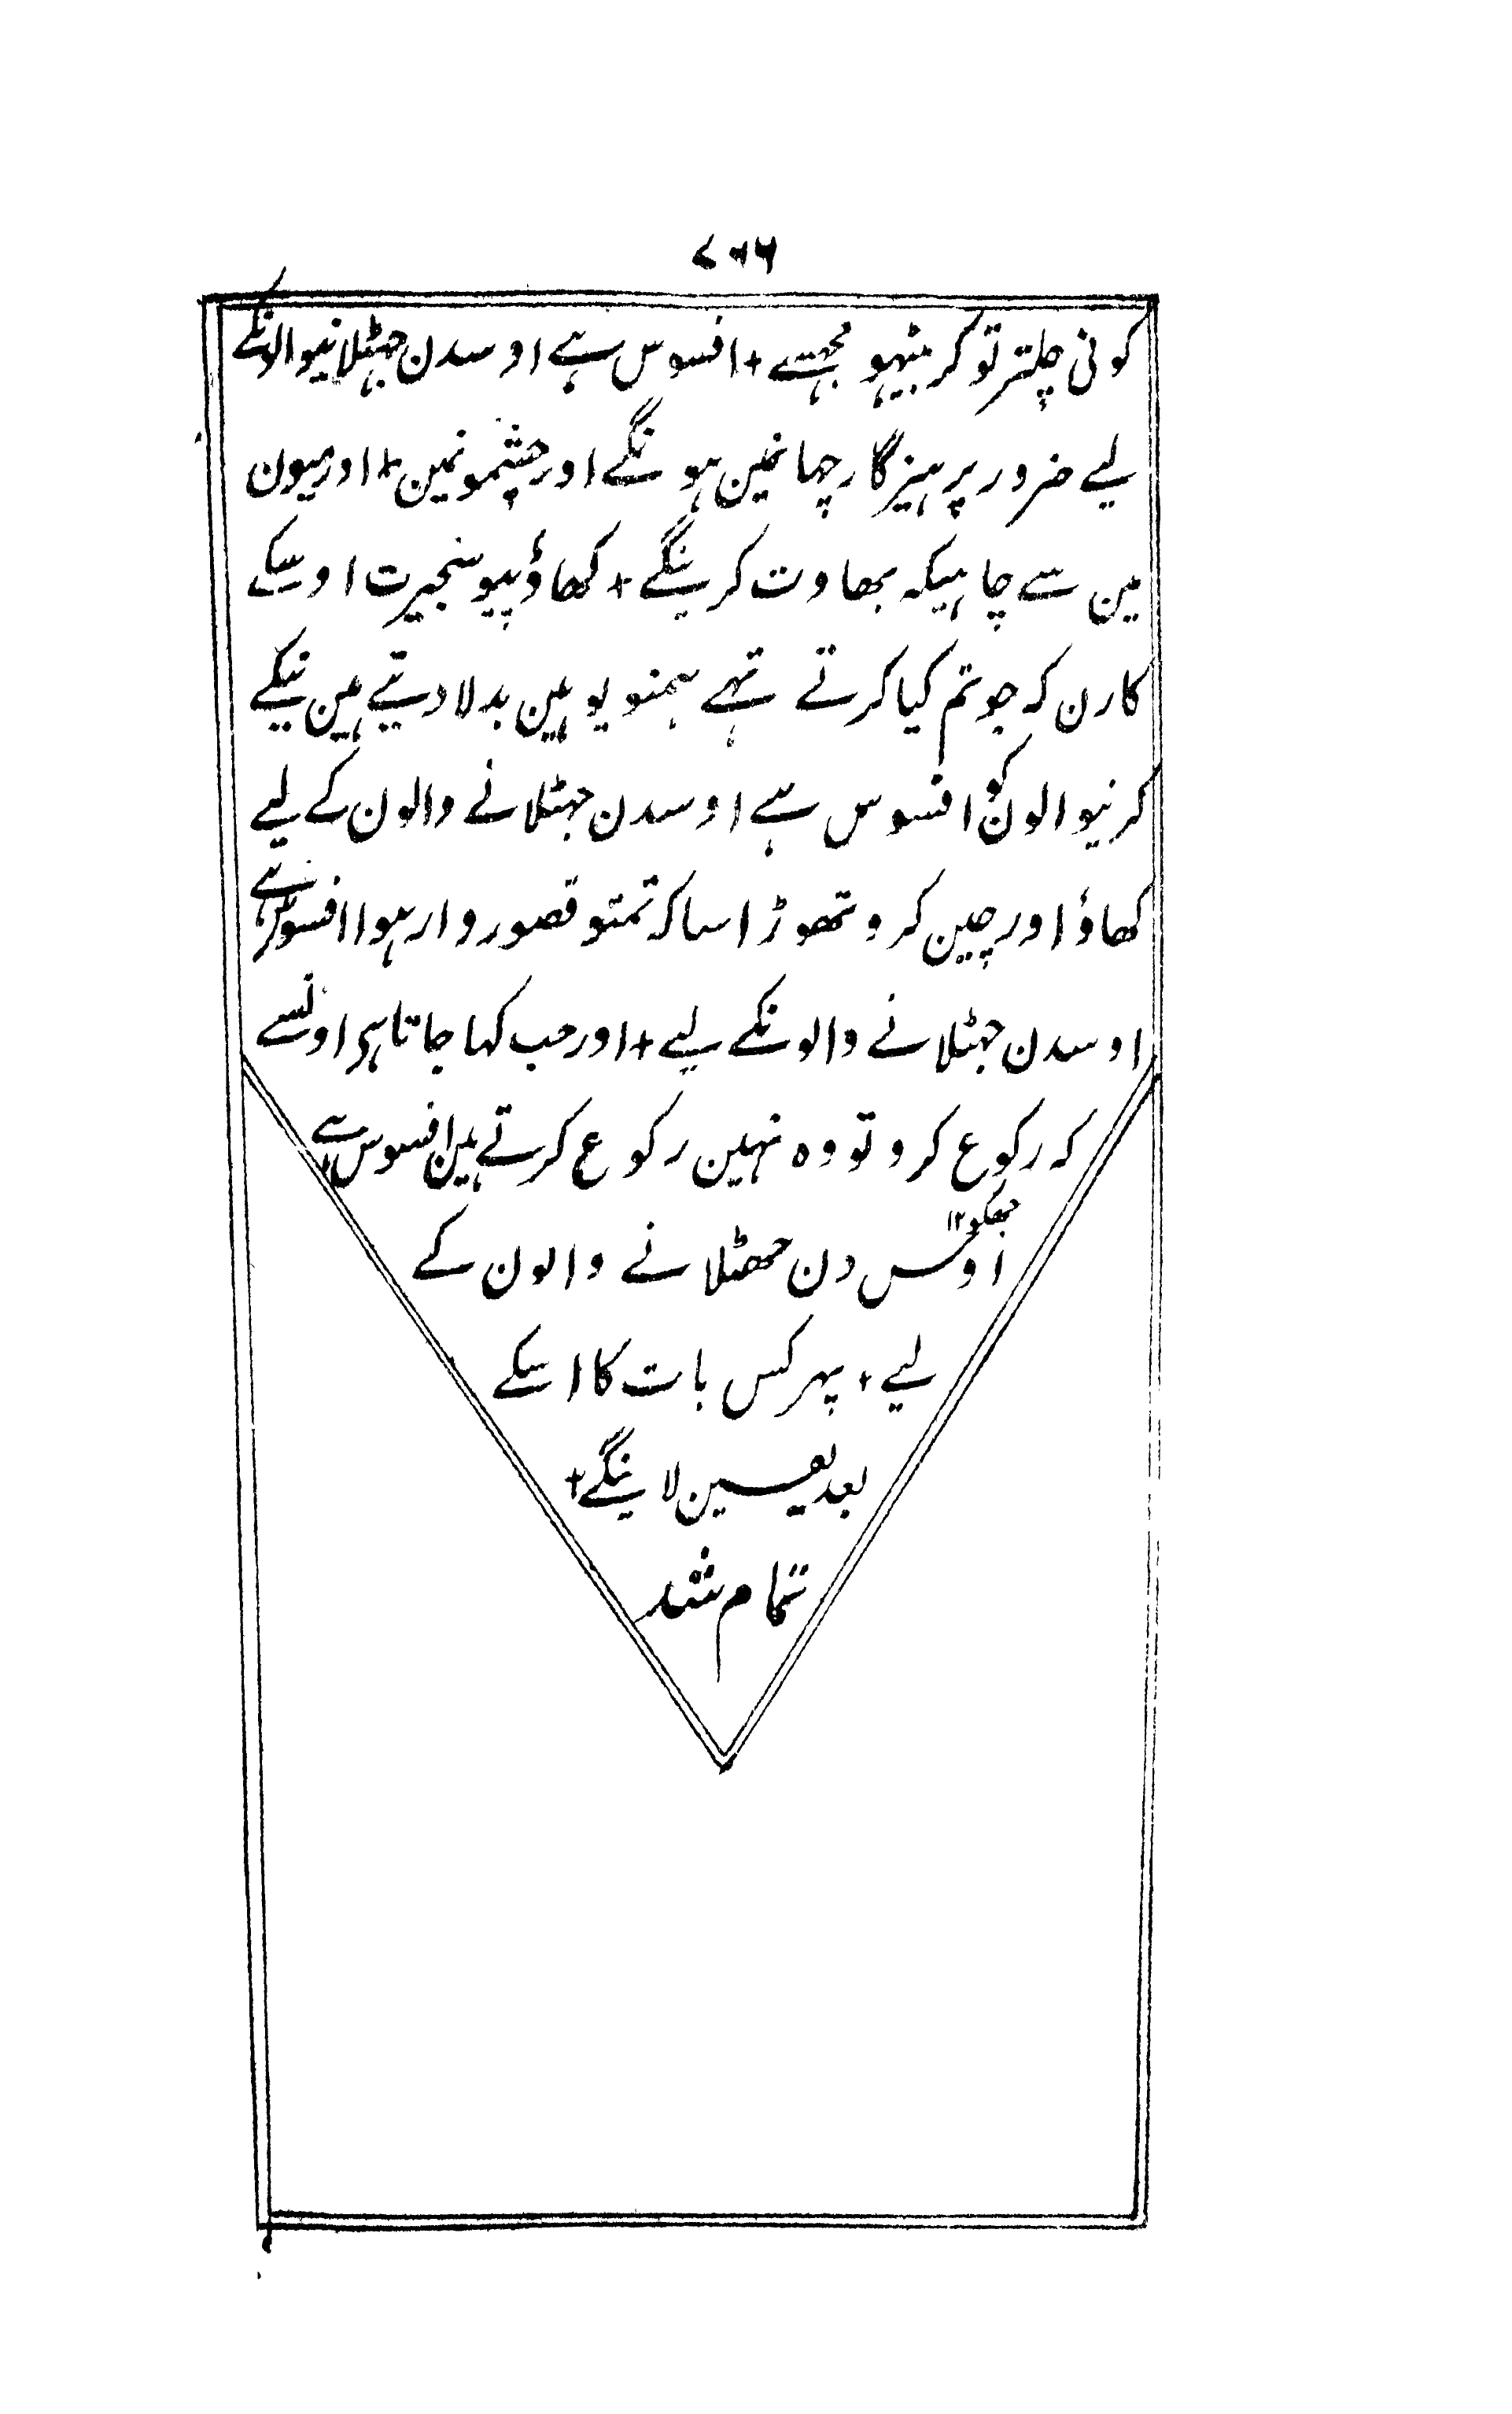 ۷۶۶
کوئی چلتر تو کر بیٹہو مجہسے + افسوس ہے اوسدن جہٹلانیوالونکے
لیے ضرور پرہیزگار چہانمین ہونگے اور چشمونمین + اور میون
مین سے چاہیکہ بھاوت کرینگے + کھاؤ پیو بخیرت اوسکے
کارن کہ جو تم کیا کرتے تہے ہمنو یوہین بدلا دیتے ہین نیکے
کرنیوالون کو افسوس ہے اوسدن جہٹلانے والون کے لیے
کھاؤ اور چین کرو تھوڑا سا کہ تمتو قصوروار ہوا افسوس ہے
اوسدن جہٹلانے والونکے لیے + اور جب کہا جاتا ہی اونسے
کہ رکوع کرو تو وہ نہین رکوع کرتے ہین افسوس ہے
جھکو ۱۲
اوس دن جھٹلانے والون کے
لیے + پہر کس بات کا اسکے
بعد یقین لاینگے +
تمام شد